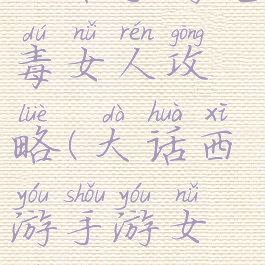 dú nǚ rén gòng
毒女人攻
lüè dà huà xī
略(大话西
yóu shǒu yóu nǚ
游手游女